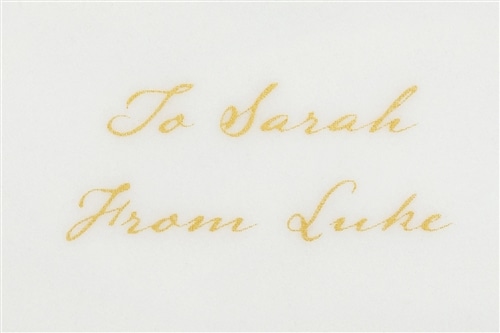 To Sarah
From Luke